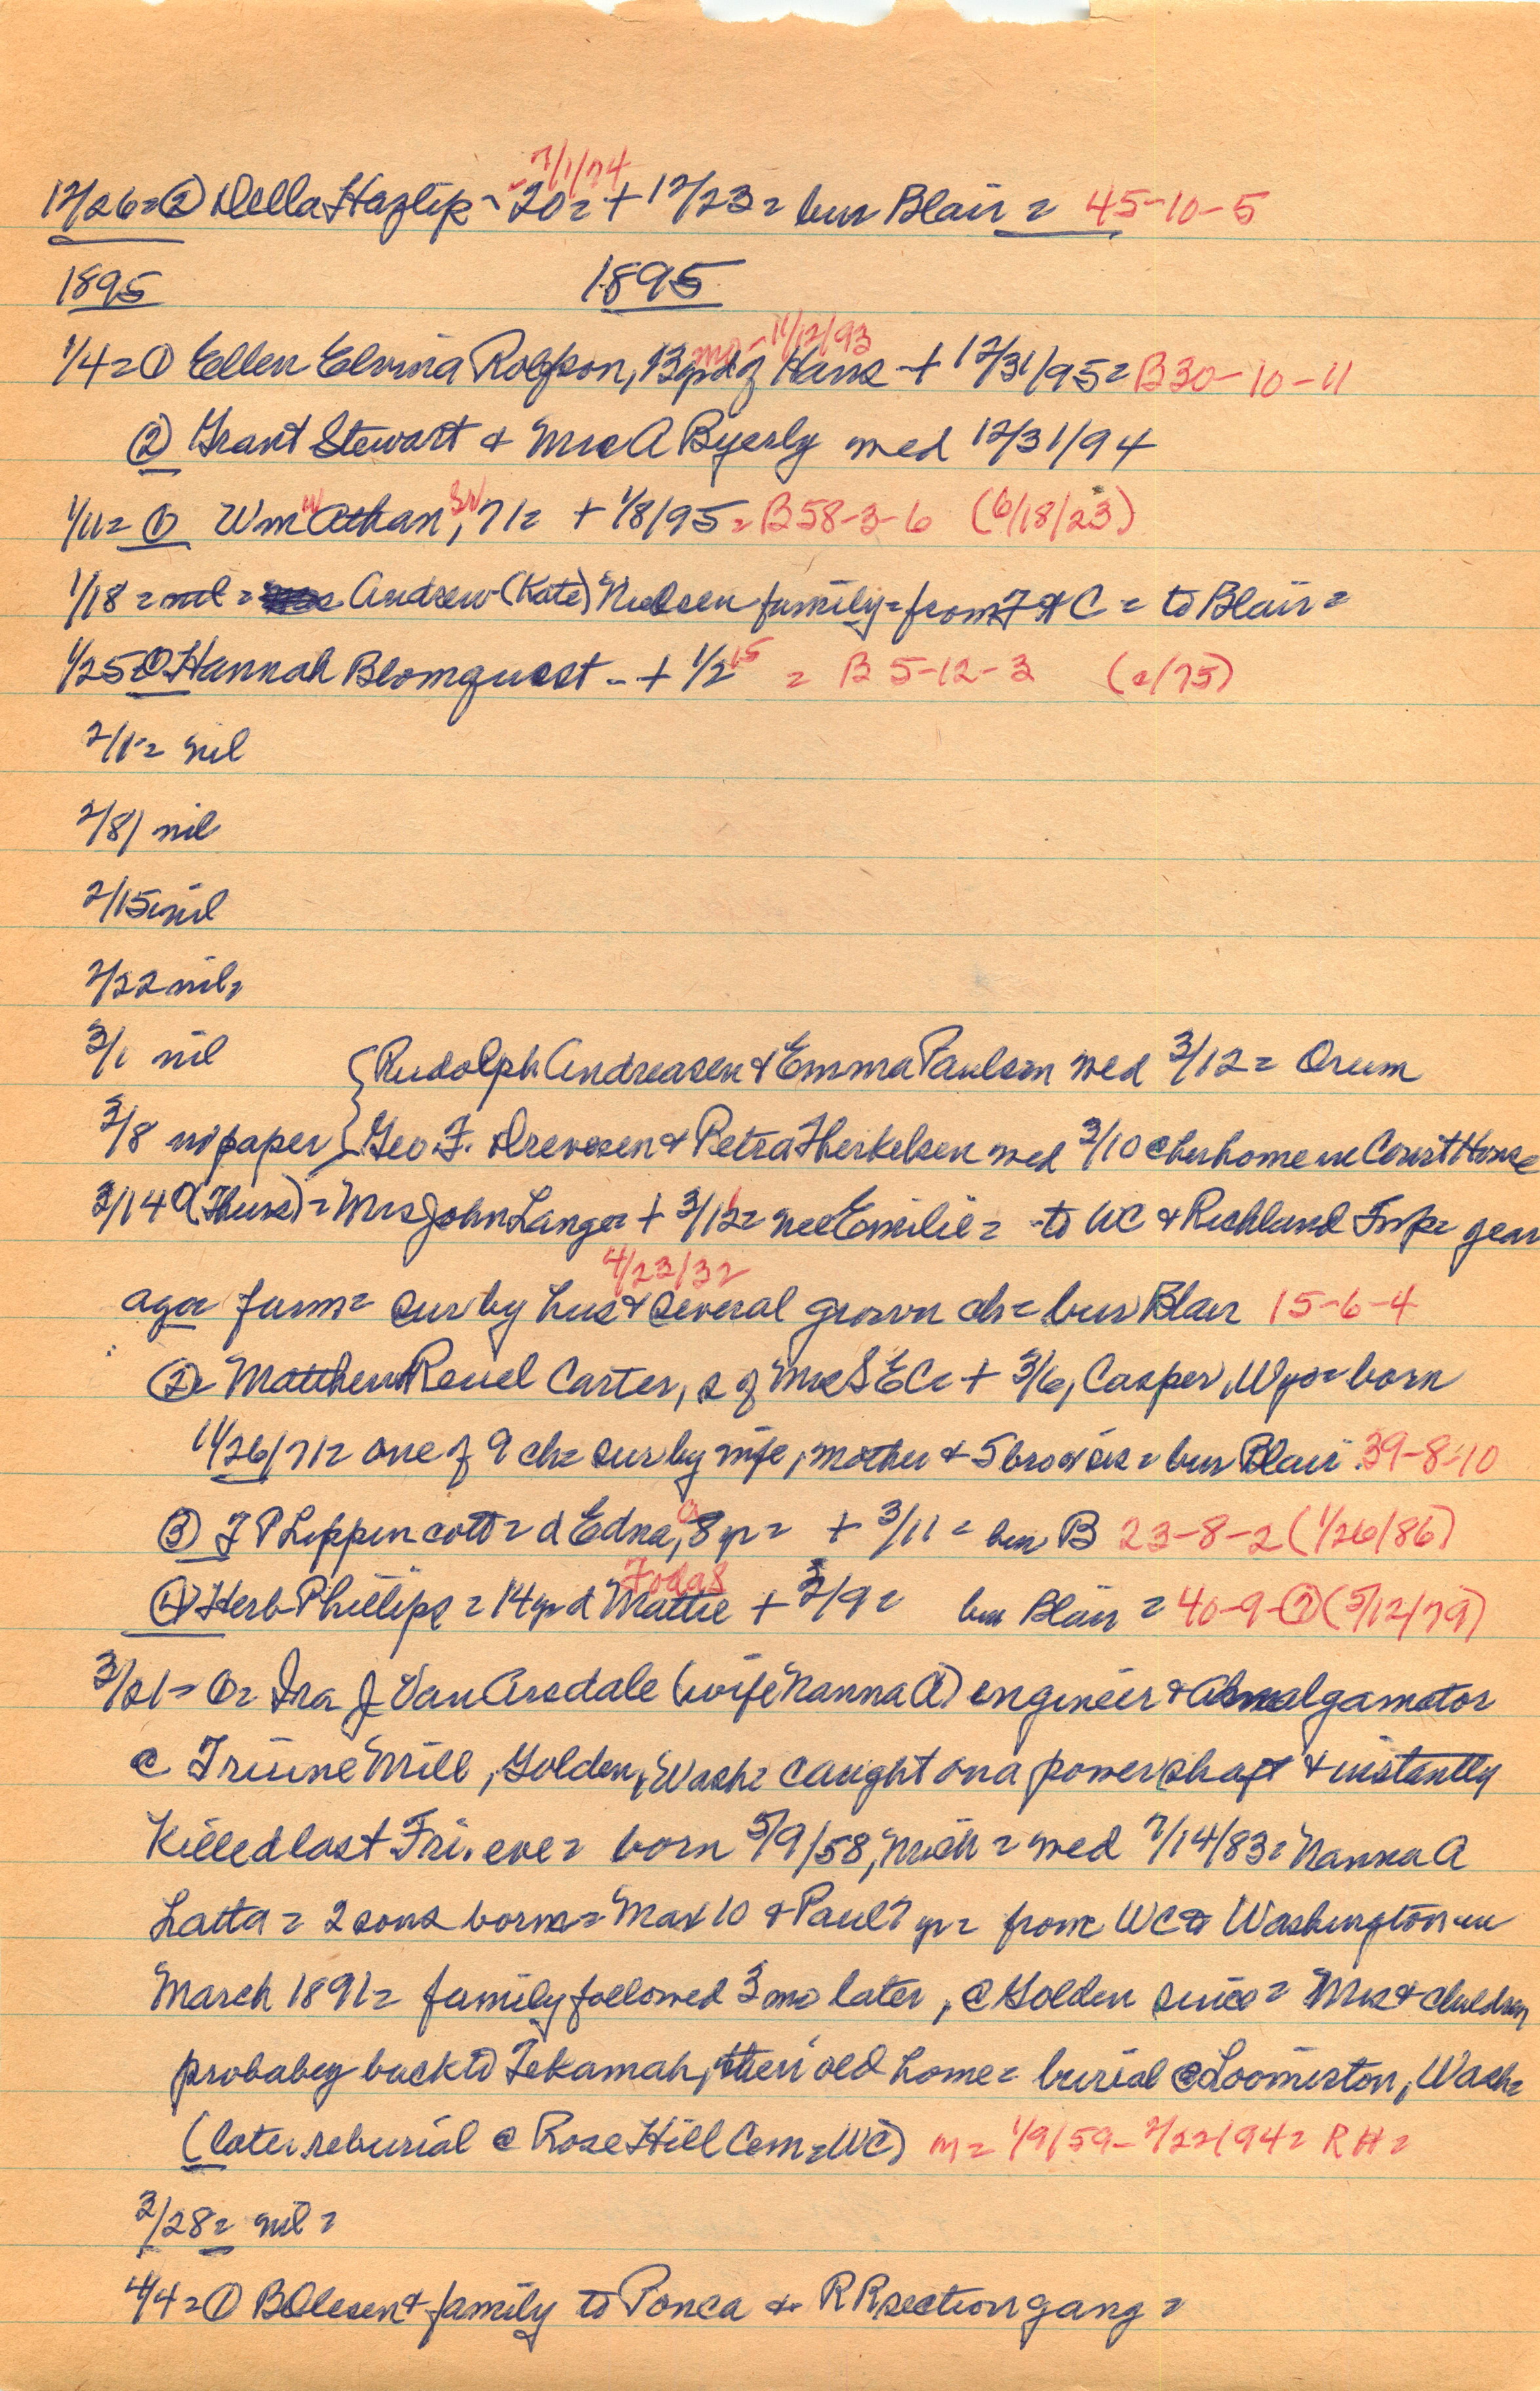 7/1/74
12/26= ② Della Hazlip - 20= + 12/23= bur Blair = 45-10-5
1895 1895
mo - 11/12/93
1/4= ① Ellen Elvina Rolfson, 13 d of Hans + 12/31/95= B30-10-11
② Grant Stewart & Mrs A Byerly wed 12/31/94
1/11= ① Wm Athan, 71= + 1/8/95= B58-3-6 (6/18/23)
1/18= nil = Andrew (Kate) Nielsen family = from = to Blair =
1/25 ① Hannah Blomquest - + 1/2 = B 5-12-3 (c/75)
2/1= nil
2/8/ nil
2/15 nil
2/22 nil=
3/1 nil { Rudolph Andreasen & Emma Paulsen wed 3/12= Orum
3/8 no paper { Geo F. Drevesen & Petra Therkelsen wed 3/10 @ her home in Court House
3/14 (Thurs) = Mrs John Langer + 3/12= nee Emilie = to WC & Richland Twp= year
4/23/32
ago= farm= sur by hus & several grown ch= bur Blair 15-6-4
②= Matthew Reuel Carter, s of Mrs S E C= + 3/6, Casper, Wyo= born
11/26/71= one of 9 ch= sur by wife, mother & 5 bro & sis = bur Blair 39-8-10
③ J P Lippencott= d Edna, 8 yr= + 3/11 = bur B 23-8-2 (1/26/86)
④ Herb Phillips = 14 yr d Mattie + 3/9= bur Blair = 40-9-⑦ (5/12/79)
3/21= ①= Ira J Van Arsdale (wife Nanna A) engineer & Amalgamator
@ Triune Mill, Golden, Wash= caught on a power shaft & instantly
Killed last Fri. eve= born 5/9/58, Mich = wed 7/14/83= Nanna A
Latta = 2 sons born= Max 10 & Paul 7 yr= from WC to Washington in
March 1891= family followed 3 mo later, @ Golden since= Mrs & children
probabey back to Tekamah, their old home= burial @ Loomiston, Wash=
(later reburial @ Rose Hill Cem= WC) m= 1/9/59- 2/22/94= RH=
3/28= nil =
4/4= ① B Olesen & family to Ponca & RR section gang =